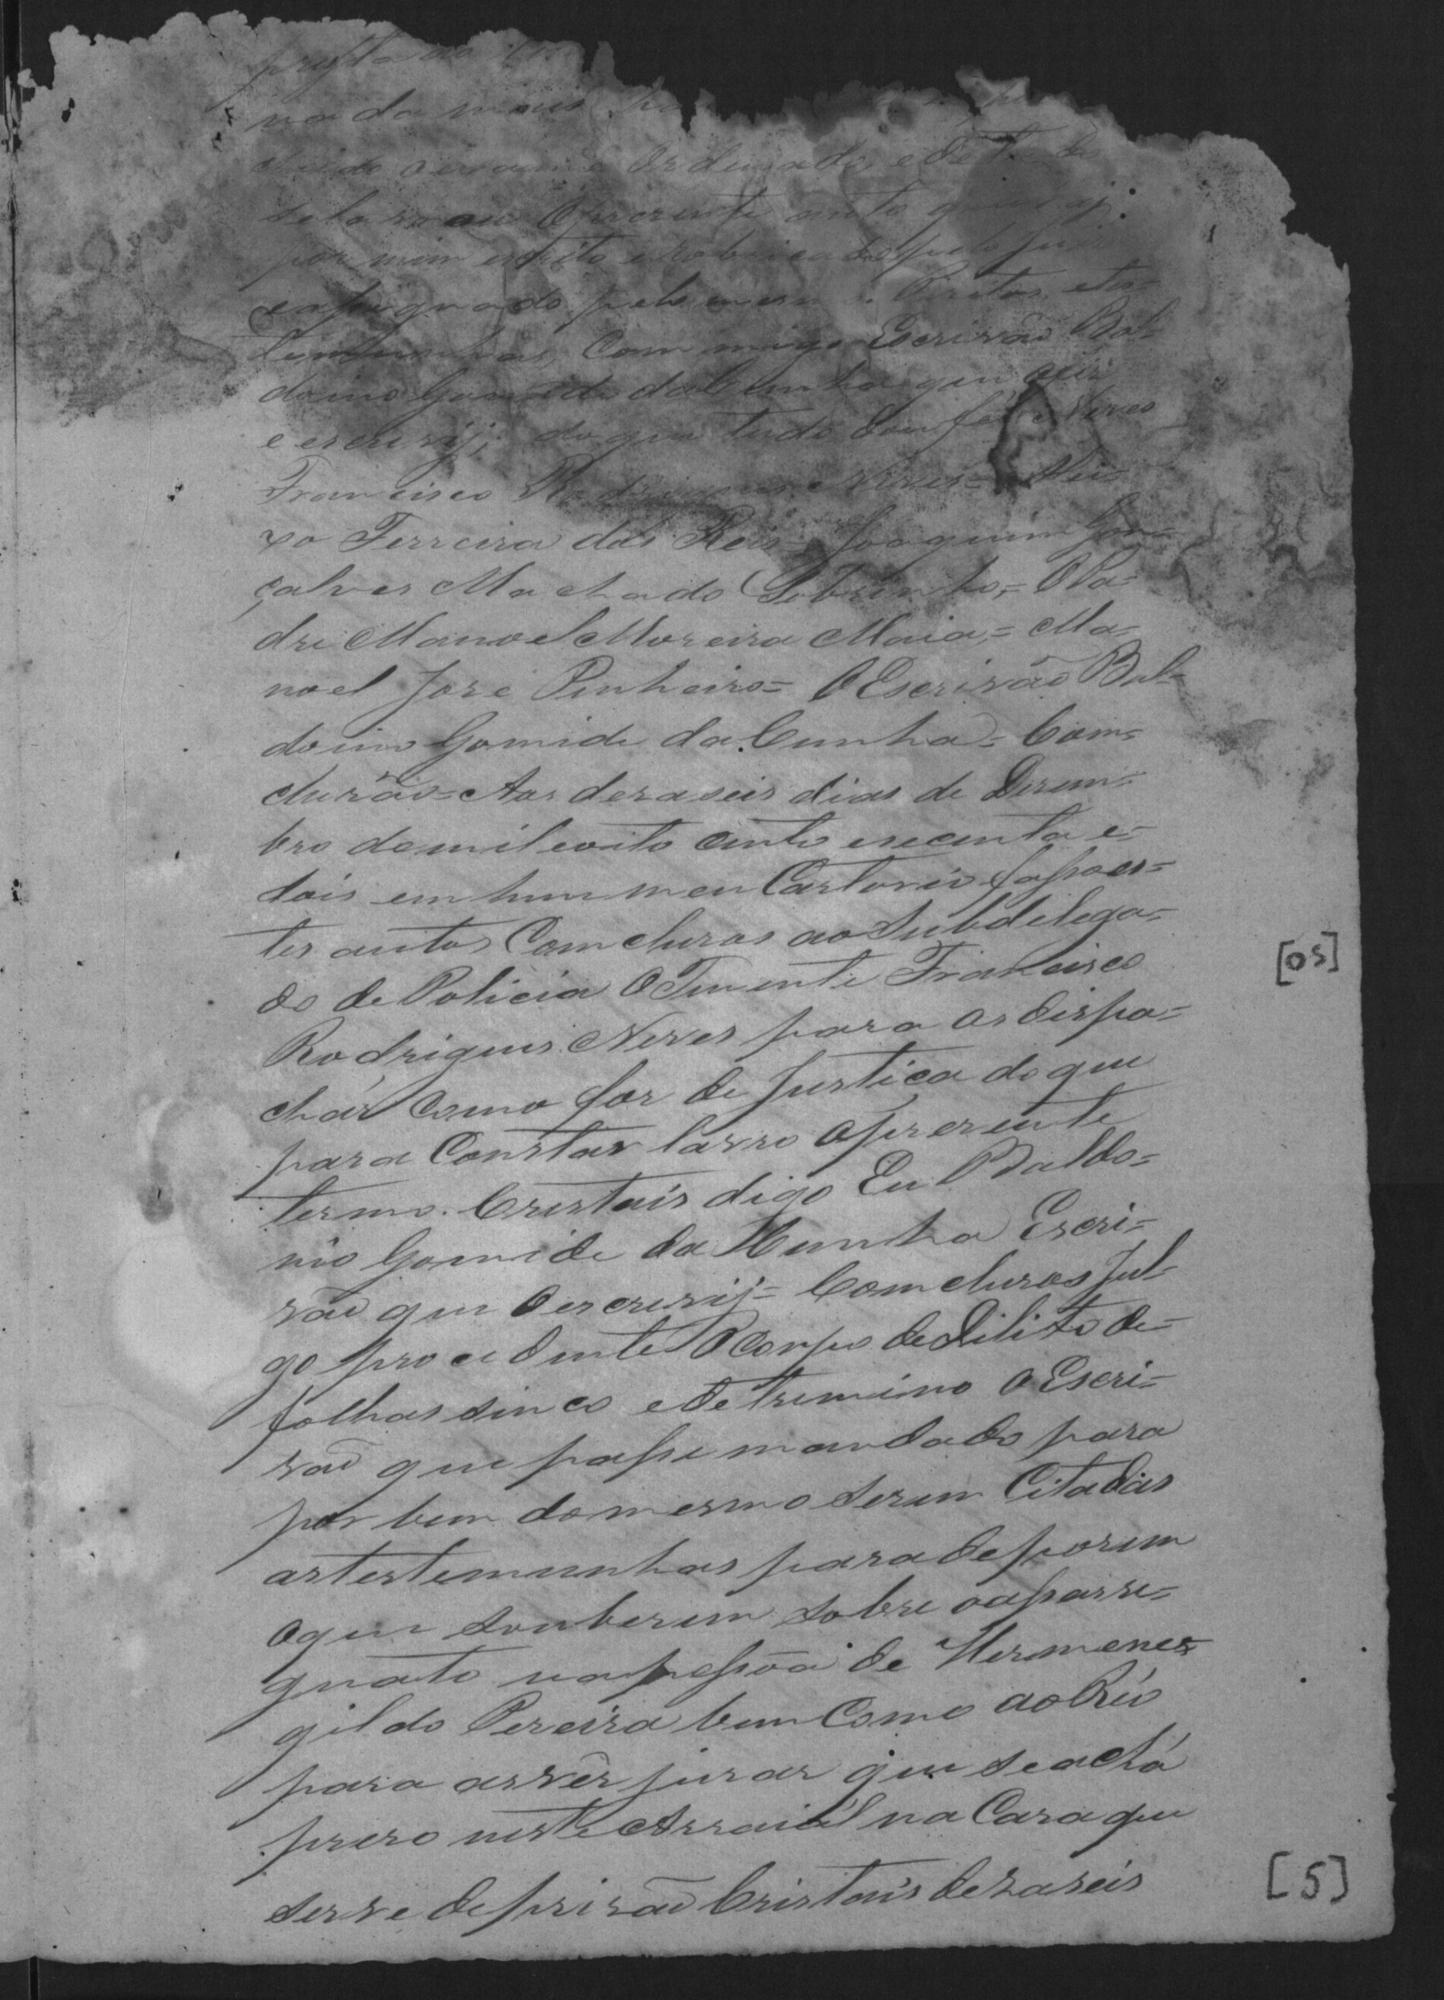 va da mais
ordenado e
o prezente auto
por mim escrito e robricado pelo Juis
e asignado pelo mesmo Peritos, etes-
temunhas, Com migo Escrivão Bal-
doino Gomide da Cunha que o fis
e escrevij; do que tudo dou fé = Neves
Francisco Rodrigues Neves = Alei-
xo Ferreira dos Reis = Joaquim Gon-
çalves Machado Sobrinho, = O Pa-
dre Manoel Moreira Maia, = Ma-
noel Jose Pinheiro = O Escrivão Bal-
doino Gomide da Cunha = Com-
cluzão = Aos dezaseis dias de Dezem-
bro de mil e oito centos e secenta e-
dois em hum meu Cartorio faço es-
tes autos Comcluzos ao Subdelega-
do de Policia O Tenente Francisco
Rodrigues Neves para os dispa-
chár como for de Justiça do que
para Constar lavro o prezente
termo. Cristais digo Eu Baldo-
ino Gomide da Cunha Escri-
vão que o escrevij = Comcluzos Jul-
go procedente O Corpo de Dilito de-
folhas sinco e detremino o Escri-
vão que passe mandado para
por bem do mesmo serem Citadas
as testemunhas para deporem
o que souberem sobre o assassi-
gnato na pessoa de Hermenez-
gildo Pereira bem Como ao Réo
para as vêr jurar que se achá
prezo neste Arraiál na Caza que
serve de prizão Cristais dezaseis
[05]
[5]